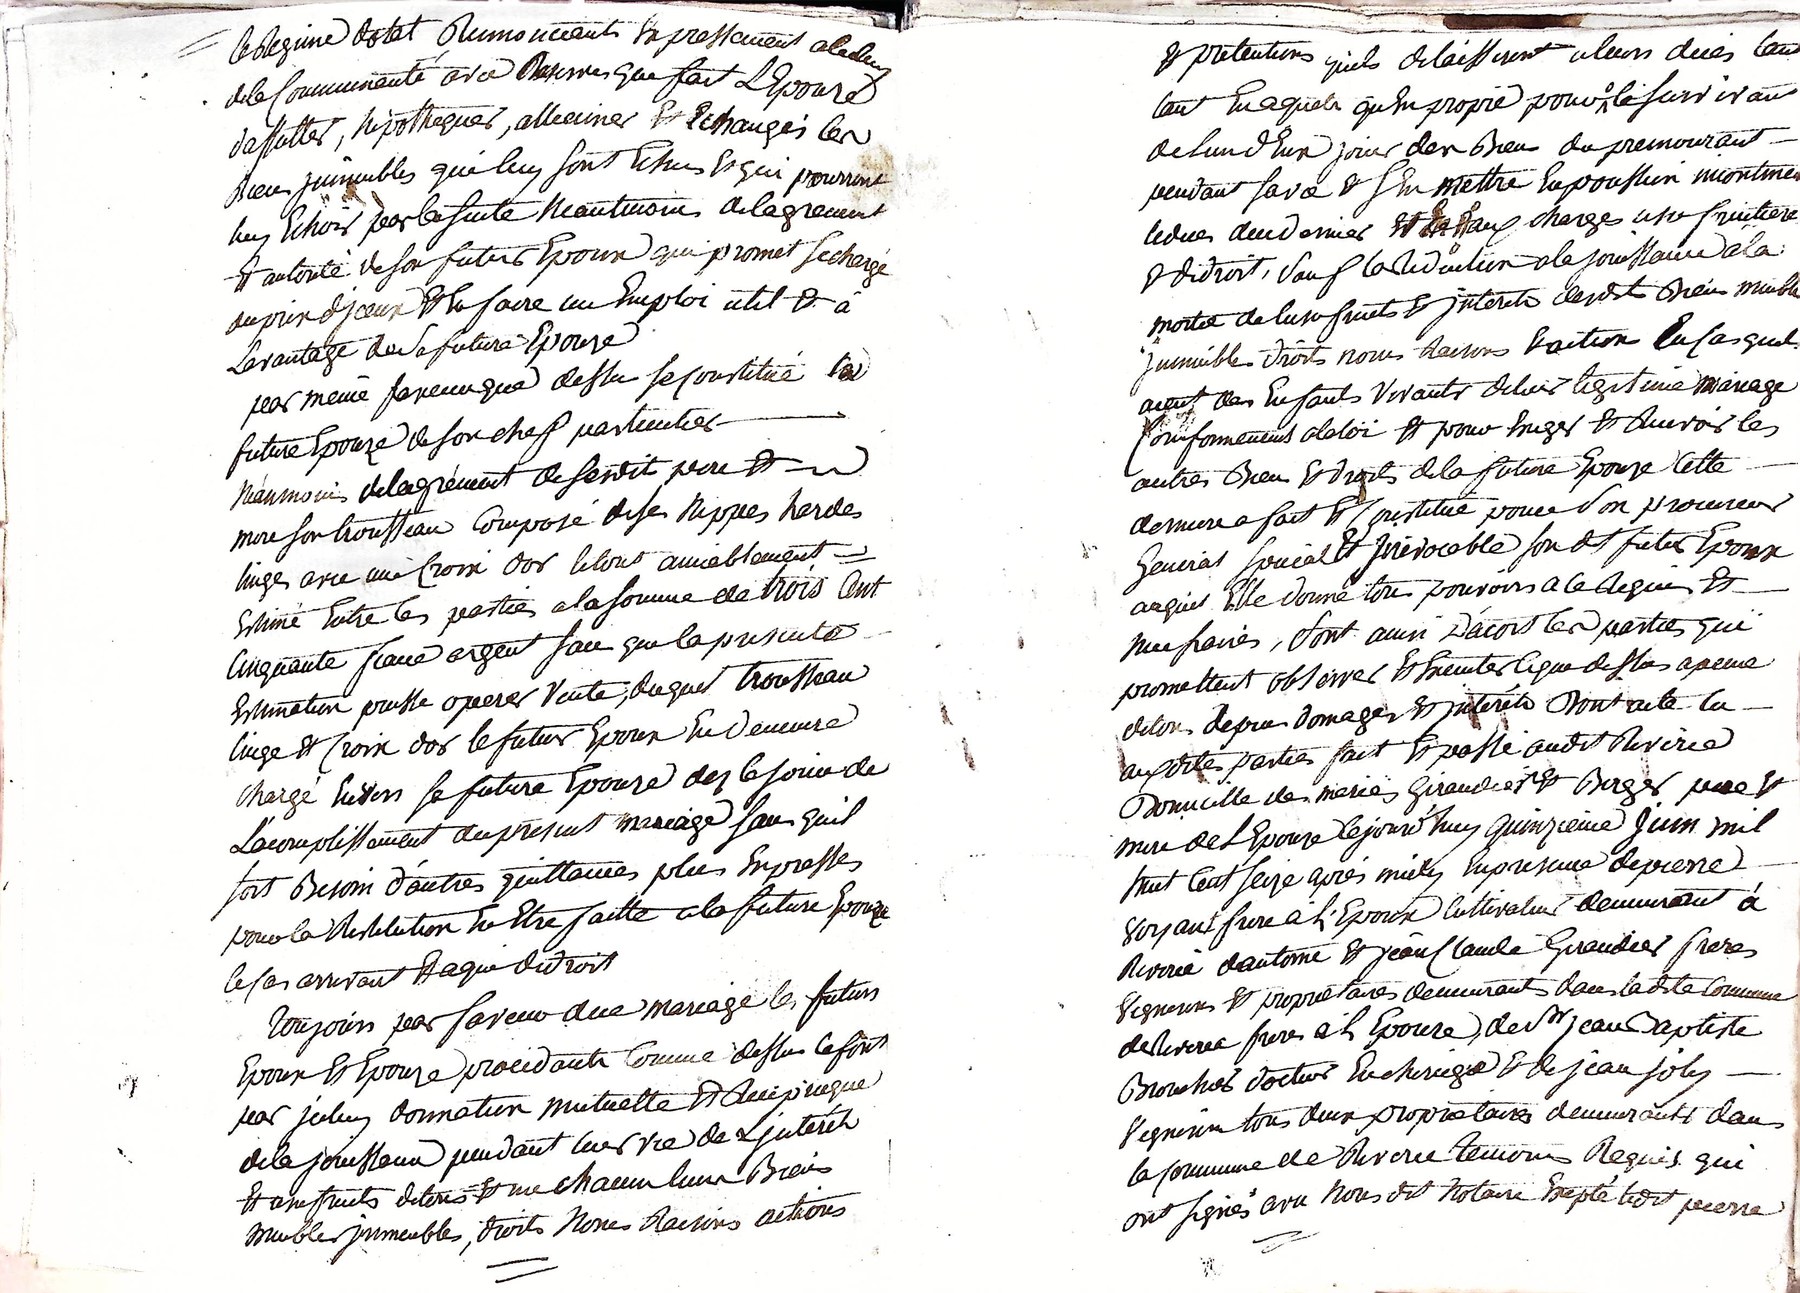 le Regime dotal Renoncent Expressement a celuy
de la Communauté avec Reserve que fait L'Epouze
d'affecter, hipothequer, alleiner Et Echanger les
Biens jmmeubles qui luy sont Echus Et qui pourront
luy Echoir par la suite Neantmoins de lagrement
Et autorité de son futur Epoux qui promet se chargé
du prix d'jceux Et En faire un Emploi util Et à
Lavantage de sa future Epouze
par même faveur que dessus se constitue la
future Epouze de son chef particulier
Néanmoins de lagrément de sesdit pere Et
mere son trousseau Composé de ses Nippes hardes
linges avec une Croix dor le tout amiablement
Estimé Entre les parties a la somme de trois Cent
Cinquante francs argent sans que la presente
Estimation puisse operer Vente, duquel trousseau
linge Et Croix dor le futur Epoux En demeure
Chargé Envers sa future Epouze dez le jour de
L'acomplissement du present mariage sans quil
soit Besoin d'autres quittances plus Expresses
pour la Restitution En Etre faitte a la future Epouze
le Cas arrivant Et a qui de droit
Toujours par faveur dud mariage les futurs
Epoux Et Epouze procedants Comme dessus se font
par jceluy donnation mutuelle Et Reciproque
de la jouissance pendant leur vie de L'jnterêts
Et usufruits de tous Et un chacun leurs Biens
meubles jmmeubles, droits Noms Raisons actions
Et pretentions quils delaisseront a leurs deces tant
tant En aquets qu'En propre pour le survivant
de lun d'Eux jouir des Biens du premourant
pendant sa vie Et s'En mettre En possession incontinent
le deces du dernier Et aux charges usufruitiere
Et de droit, sauf la Reduction de la jouissance a la
moitié de lusufruits Et jnterets desdts Biens meubles
jmmeubles droits noms Raisons Et actions En Cas quil
aient des Enfants Vivants de leur legitime mariage
Conformement a la loi Et pour Exiger Et Recevoir les
autres Biens Et droits de la future Epouze Cette
derniere a fait Et Constitué pour son procureur
General special Et jrrévocable son dt futur Epoux
auquel Elle donne tous pouvoirs a ce Requis Et
necessaires, sont ainsi D'acort les parties qui
promettent observer Et Executer ce que dessus a peine
de tous depens domages Et jnterêts Dont acte Lu
auxdites parties fait Et passé audit Riverie
Domicille des mariés Giraudier Et Berger pere Et
mere de L'Epouze le jourd'huy quinzieme Juin mil
huit Cent seize après midy En presence de pierre
Voyant frere à L'Epoux Cultivateur demeurant à
Riverie d'antoine Et jean Claude Giraudier freres
Vignerons Et proprietaires demeurants dans ladite Commune
de Riverie freres à L'Epouze, de Sr jean Baptiste
Brouches docteur En chirurgie Et de jean joly
Vigneron tous deux proprietaires demeurants dans
la Commune de Riverie temoins Requis qui
ont signés avec Nous dit Notaire Excepté ledit pierre